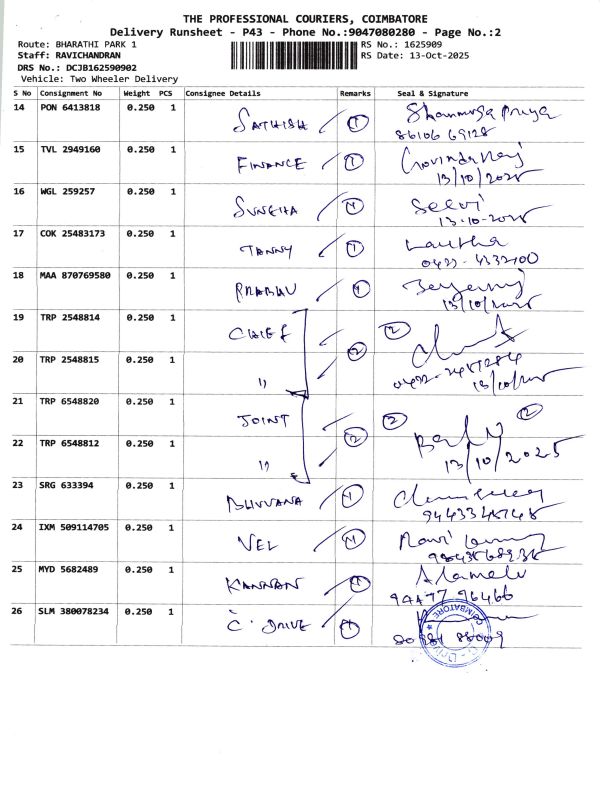 THE PROFESSIONAL COURIERS, COIMBATORE
Delivery Runsheet - P43 - Phone No.:9047080280 - Page No.:2
Route: BHARATHI PARK 1 RS No.: 1625909
Staff: RAVICHANDRAN RS Date: 13-Oct-2025
DRS No.: DCJB162590902
Vehicle: Two Wheeler Delivery
S No Consignment No Weight PCS Consignee Details Remarks Seal & Signature
14 PON 6413818 0.250 1 SATHISH 1 Shanmuga Priya
86106 69128
15 TVL 2949160 0.250 1 FINANCE 1 Govindaraj
13/10/2025
16 WGL 259257 0.250 1 SUNEHA 1 Selvi
13-10-2025
17 COK 25483173 0.250 1 TANNY 1 Lautha
0422-4332100
18 MAA 870769580 0.250 1 PRABHU 1
13/10/2025
19 TRP 2548814 0.250 1 CHIEF 2 2
20 TRP 2548815 0.250 1 "
13/10/2025
21 TRP 6548820 0.250 1 JOINT 2 2 2
22 TRP 6548812 0.250 1 "
13/10/2025
23 SRG 633394 0.250 1 BHUVANA 1
24 IXM 509114705 0.250 1 VEL 1
25 MYD 5682489 0.250 1 KANNAN 1 Alamelu
94477 96466
26 SLM 380078234 0.250 1 C. DRIVE 1
COIMBATORE